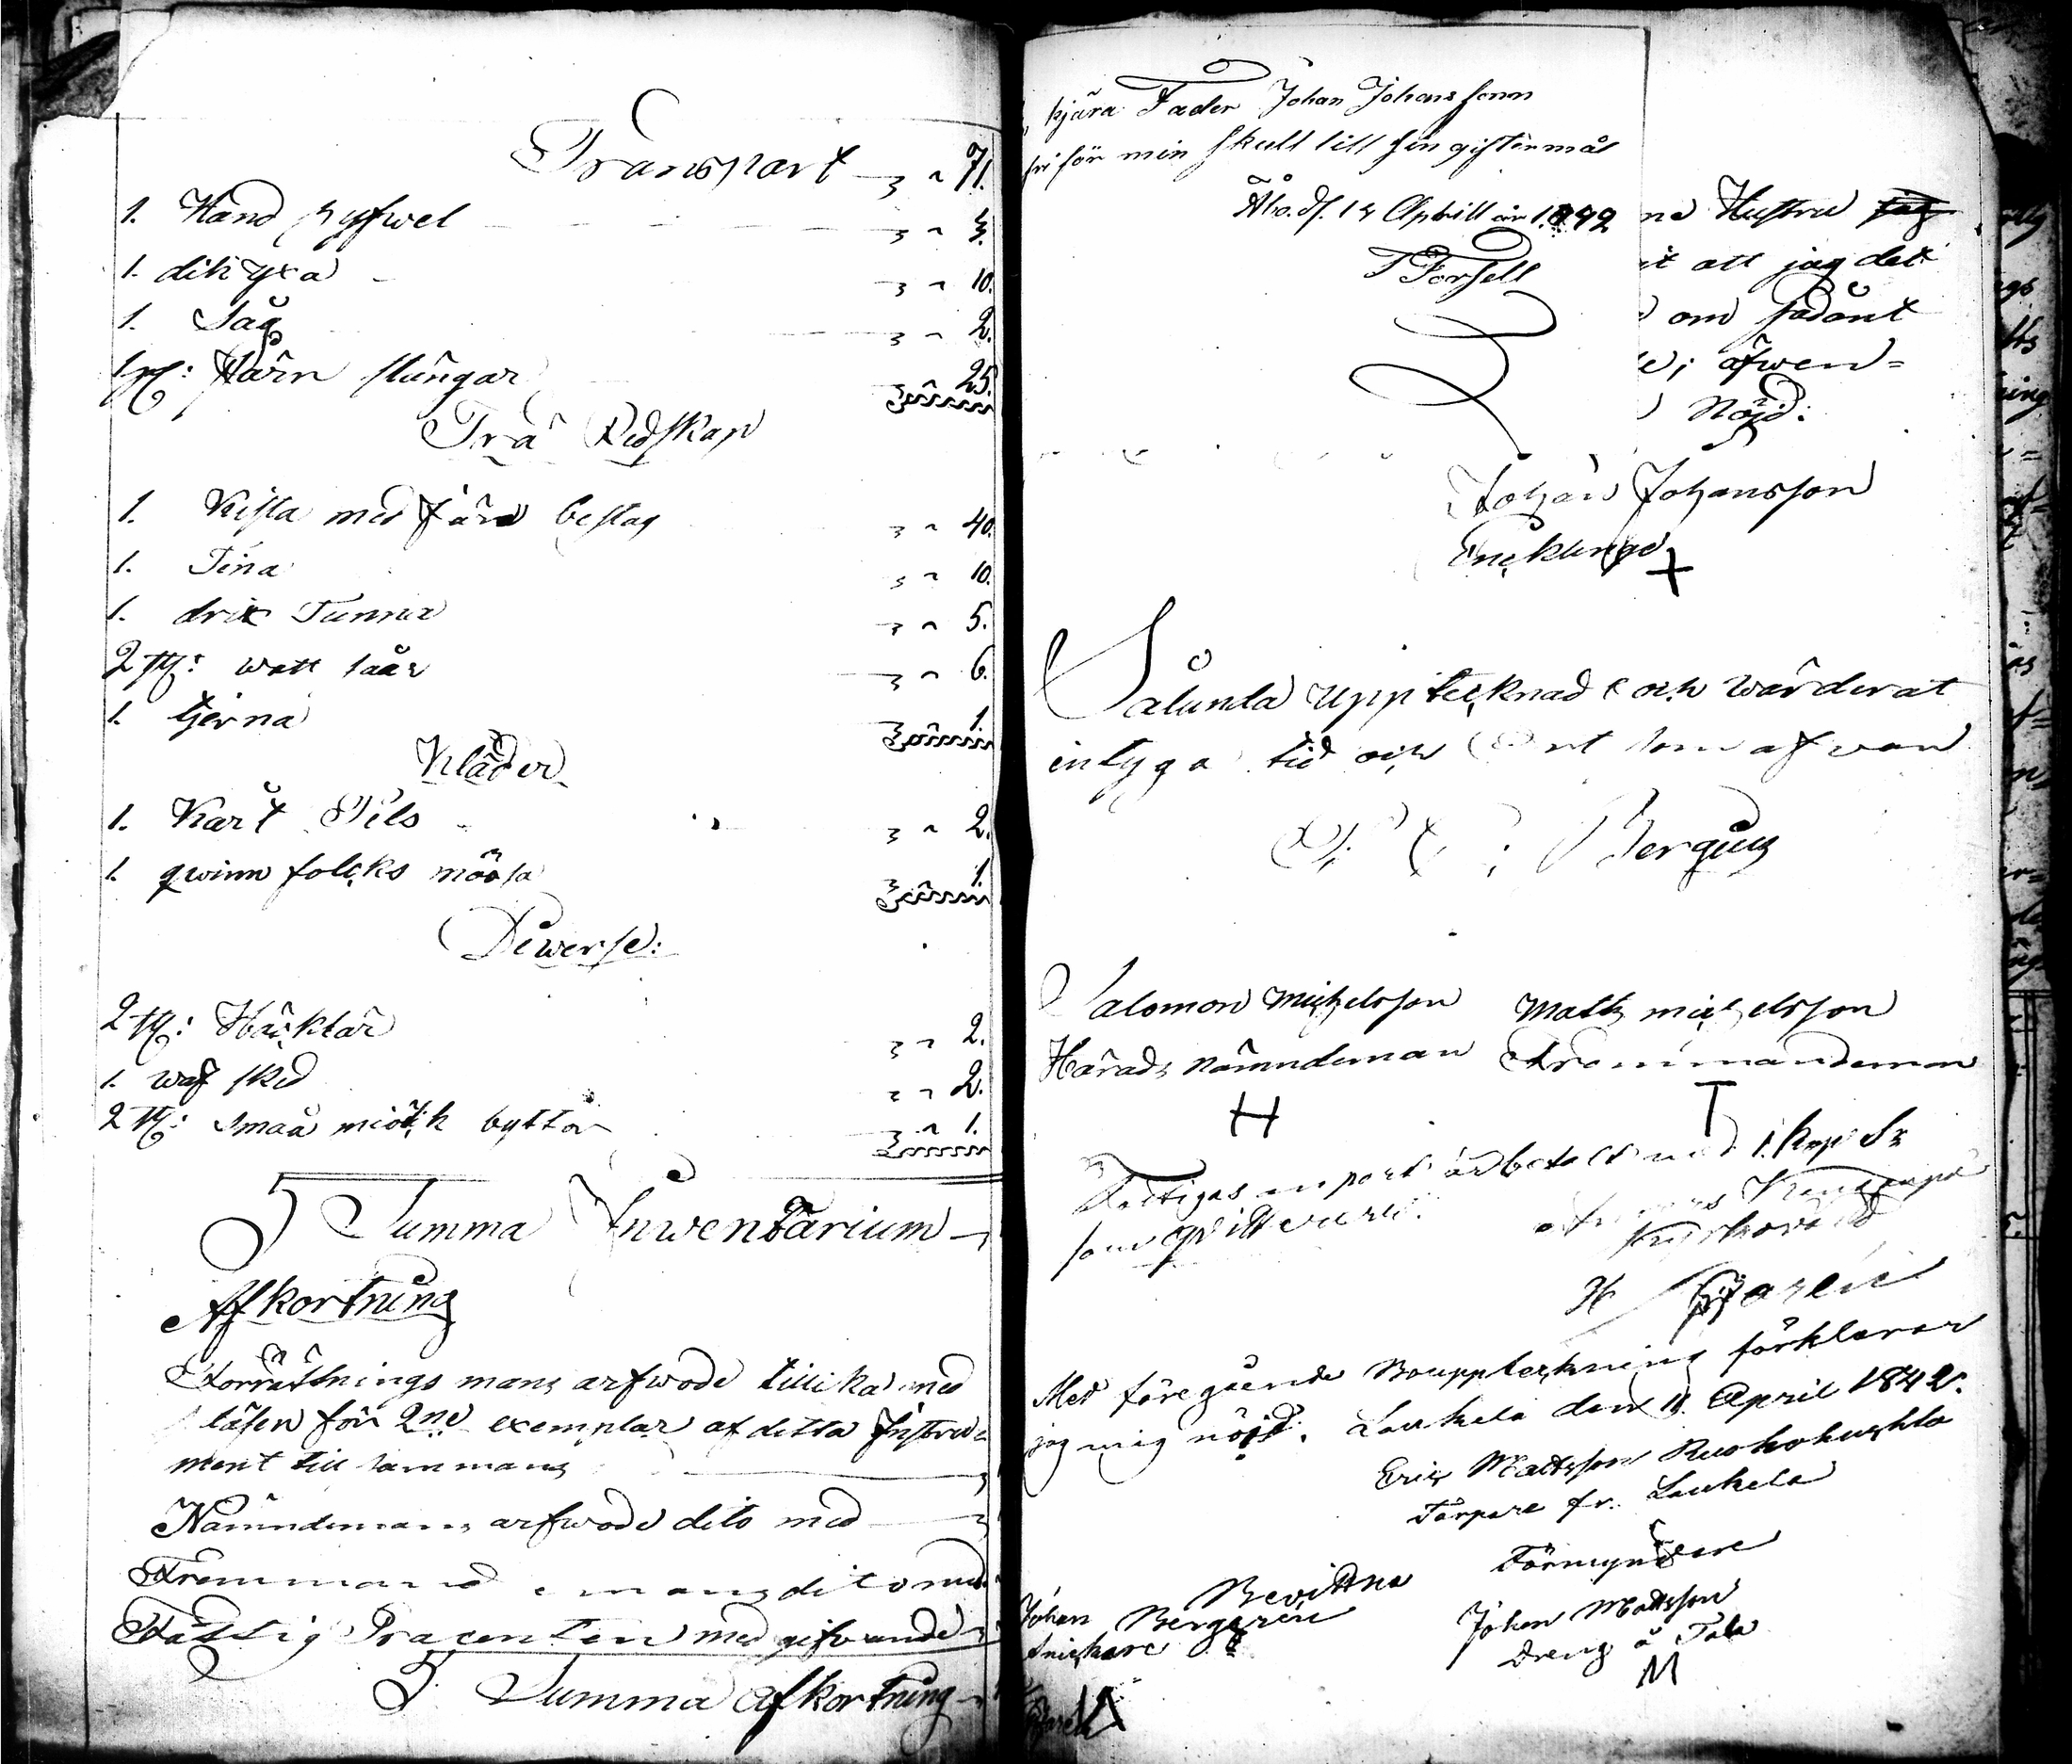 Transport " 71.
1. Hand hyfwel " 3.
1. dik yxa " 10.
1. Såg " 2.
1 st: Järn stängar 25.
Trä Redskap
1. Kista med Järn beslag " 40.
1. Tina " 10.
1. drix Tunna " 5.
2 st: watt såar " 6.
1. tjerna 1.
Kläder
1. Kart Pels " 2.
1. qwinn folcks mössa 1.
Diwerse:
2 st: Häcklar " 2.
1. waf sked " 2.
2 st: Smaå miölk byttor " 1.
Summa Inwentarium
Afkortning
Förrättnings mans arfwode tillika med
lösen för 2ne exemplar af detta Instru=
ment till sammans
Nämndemans arfwode dito med
mans dito med
Fattig Procenten med gifwande
Summa afkortning
kjära Fader Johan Johansson
för min skull till sin giftermål
Åbo. d. 14 Aprill år 1842
Forsell
na Hustru
it att jag det
om sådant
e; äfwen=
Nöjd:
Johan Johansson
Enckling
Sålunda upptecknad och wärderat
intyga tid och Ort som afwan
Bergius
Salomon Michelsson Matts michelsson
Härads nämndeman
H T
Fattigas anpart är betalt med 1 Kop Sr
som qvitteras.
Med föregående Bouppteckning förklarar
jag mig nöjd. Laukela den 11 April 1842.
Eric Mattsson Ruohokuckla
Torpare fr. Laukela
Förmyndare
Bevittna
Johan Berggren Johan Mattsson
Snickare Dreng å Tala
M